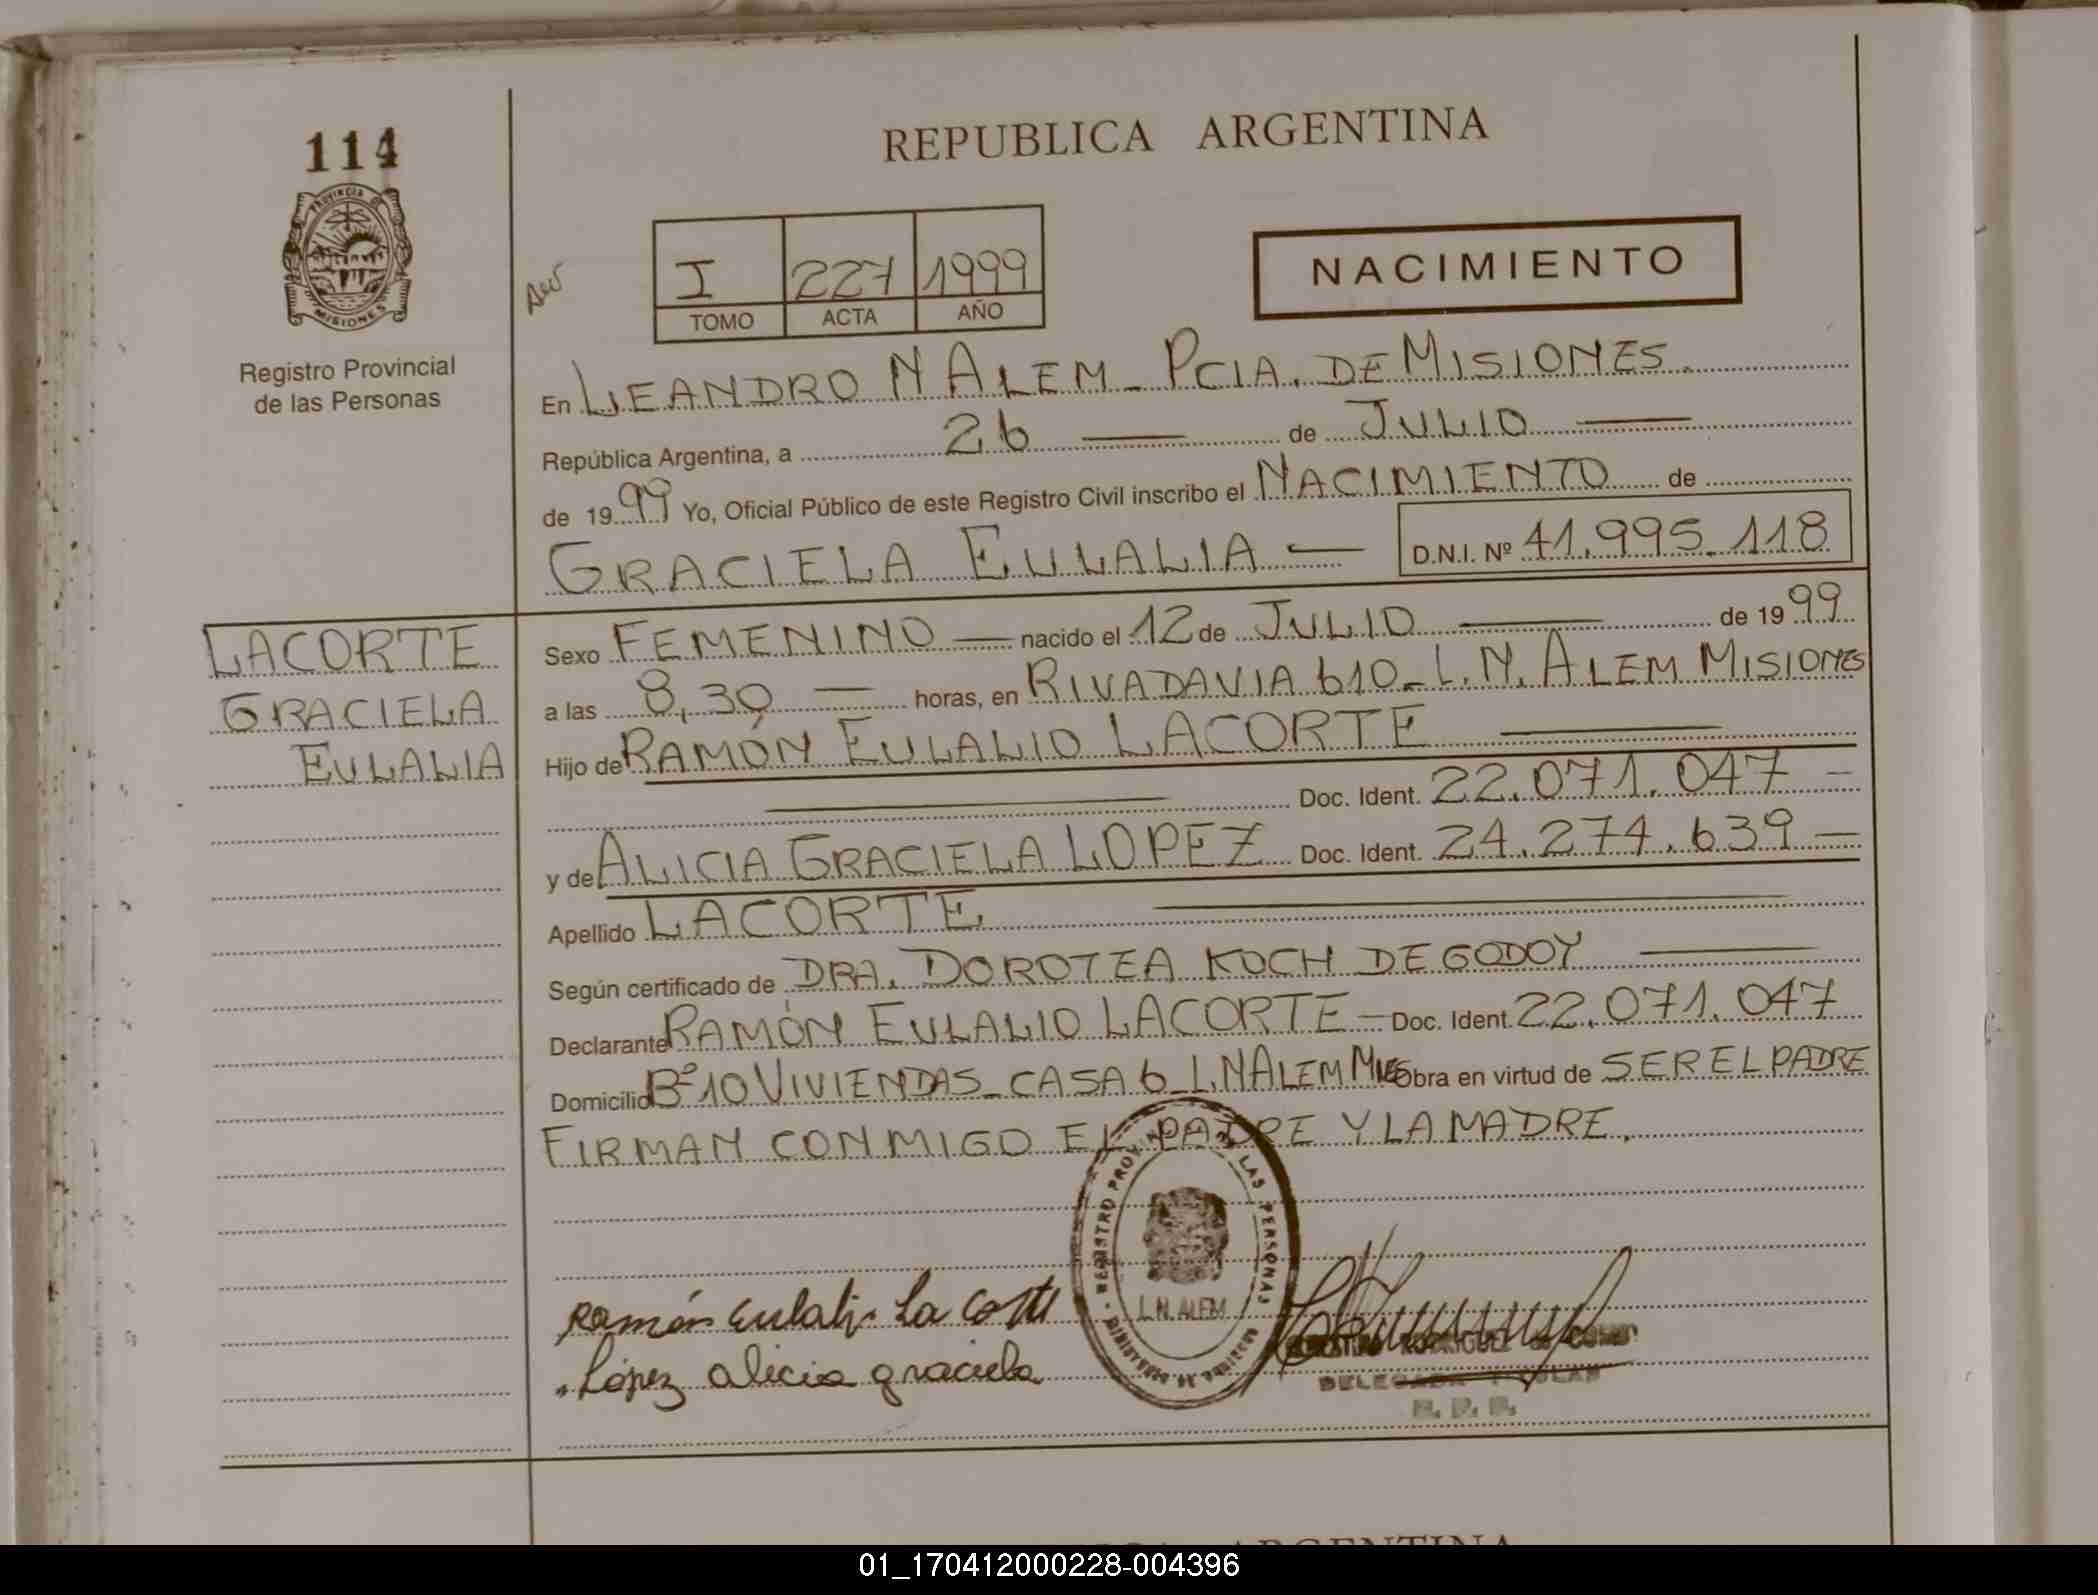 114
PROVINCIA DE
MISIONES
Registro Provincial
de las Personas
REPUBLICA ARGENTINA
I 227 1999
TOMO ACTA AÑO
NACIMIENTO
En LEANDRO N ALEM - PCIA. DE MISIONES.
República Argentina, a 26 — de JULIO —
de 1999 Yo, Oficial Público de este Registro Civil inscribo el NACIMIENTO de
GRACIELA EULALIA — D.N.I. Nº 41.995.118
LACORTE
GRACIELA
EULALIA
Sexo FEMENINO — nacido el 12 de JULIO — de 1999
a las 8,30 — horas, en RIVADAVIA 610 - L. N. ALEM MISIONES
Hijo de RAMÓN EULALIO LACORTE —
— Doc. Ident. 22.071.047 —
y de ALICIA GRACIELA LOPEZ Doc. Ident. 24.274.639 —
Apellido LACORTE —
Según certificado de DRA. DOROTEA KOCH DE GODOY —
Declarante RAMÓN EULALIO LACORTE — Doc. Ident. 22.071.047
Domicilio Bº 10 VIVIENDAS - CASA 6 - L. N ALEM Mnes Obra en virtud de SER EL PADRE
FIRMAN CONMIGO EL PADRE Y LA MADRE.
REGISTRO PROVINCIAL DE LAS PERSONAS
L.N. ALEM
MINISTERIO DE GOBIERNO
Ramón Eulalio La Corte
López Alicia graciela
RODRIGUEZ de
DELEGADA TITULAR
R. P. P.
ARGENTINA
01_170412000228-004396